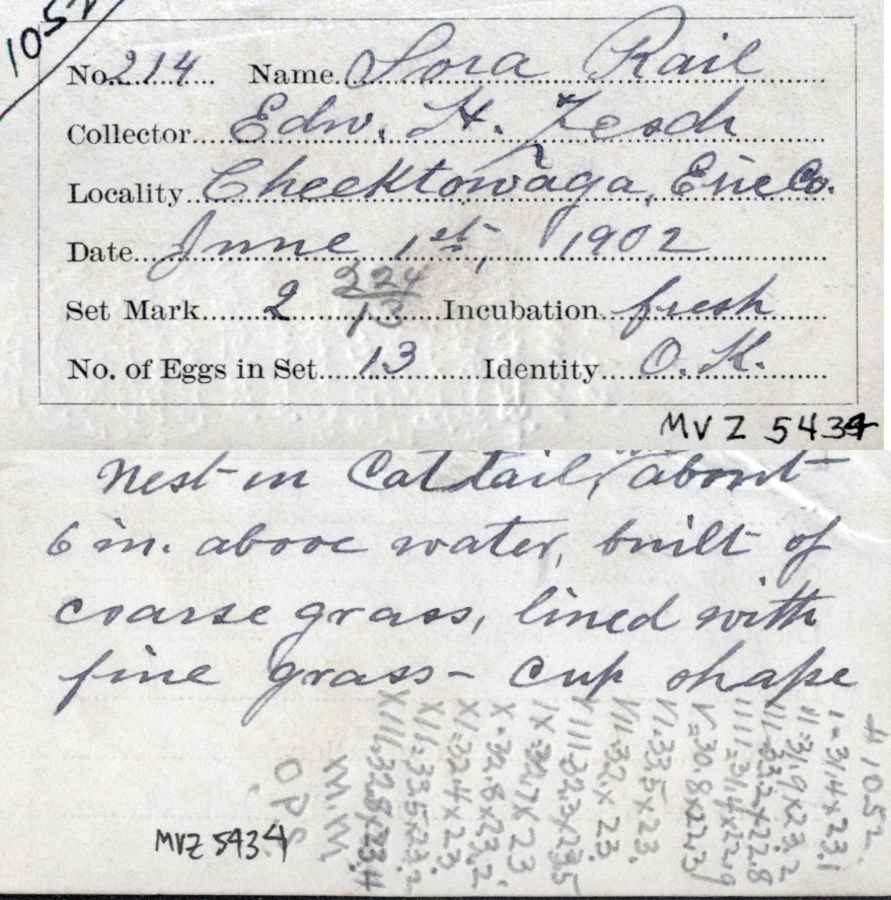 1052
No. 214 Name Sora Rail
Collector Edw. H. Zesch
Locality Cheektowaga, Erie Co.
Date June 1st, 1902
Set Mark 2 224/13 Incubation fresh
No. of Eggs in Set 13 Identity O.K.
MVZ 5434
Nest in Cattail, about
6 in. above water, built of
coarse grass, lined with
fine grass - cup shape
#1052
I = 31.4 x 23.1
II = 31.9 x 23.2
III = 33.2 x 22.8
IIII = 31.4 x 22.9
V = 30.8 x 22.3
VI = 33.5 x 23.
VII = 32 x 23.
VIII = 32.3 x 23.5
IX = 32.7 x 23
X = 32.8 x 23.2
XI = 32.4 x 23.
XII = 33.5 x 23.2
XIII = 32.8 x 23.4
M.M
O.P.S.
MVZ 5434